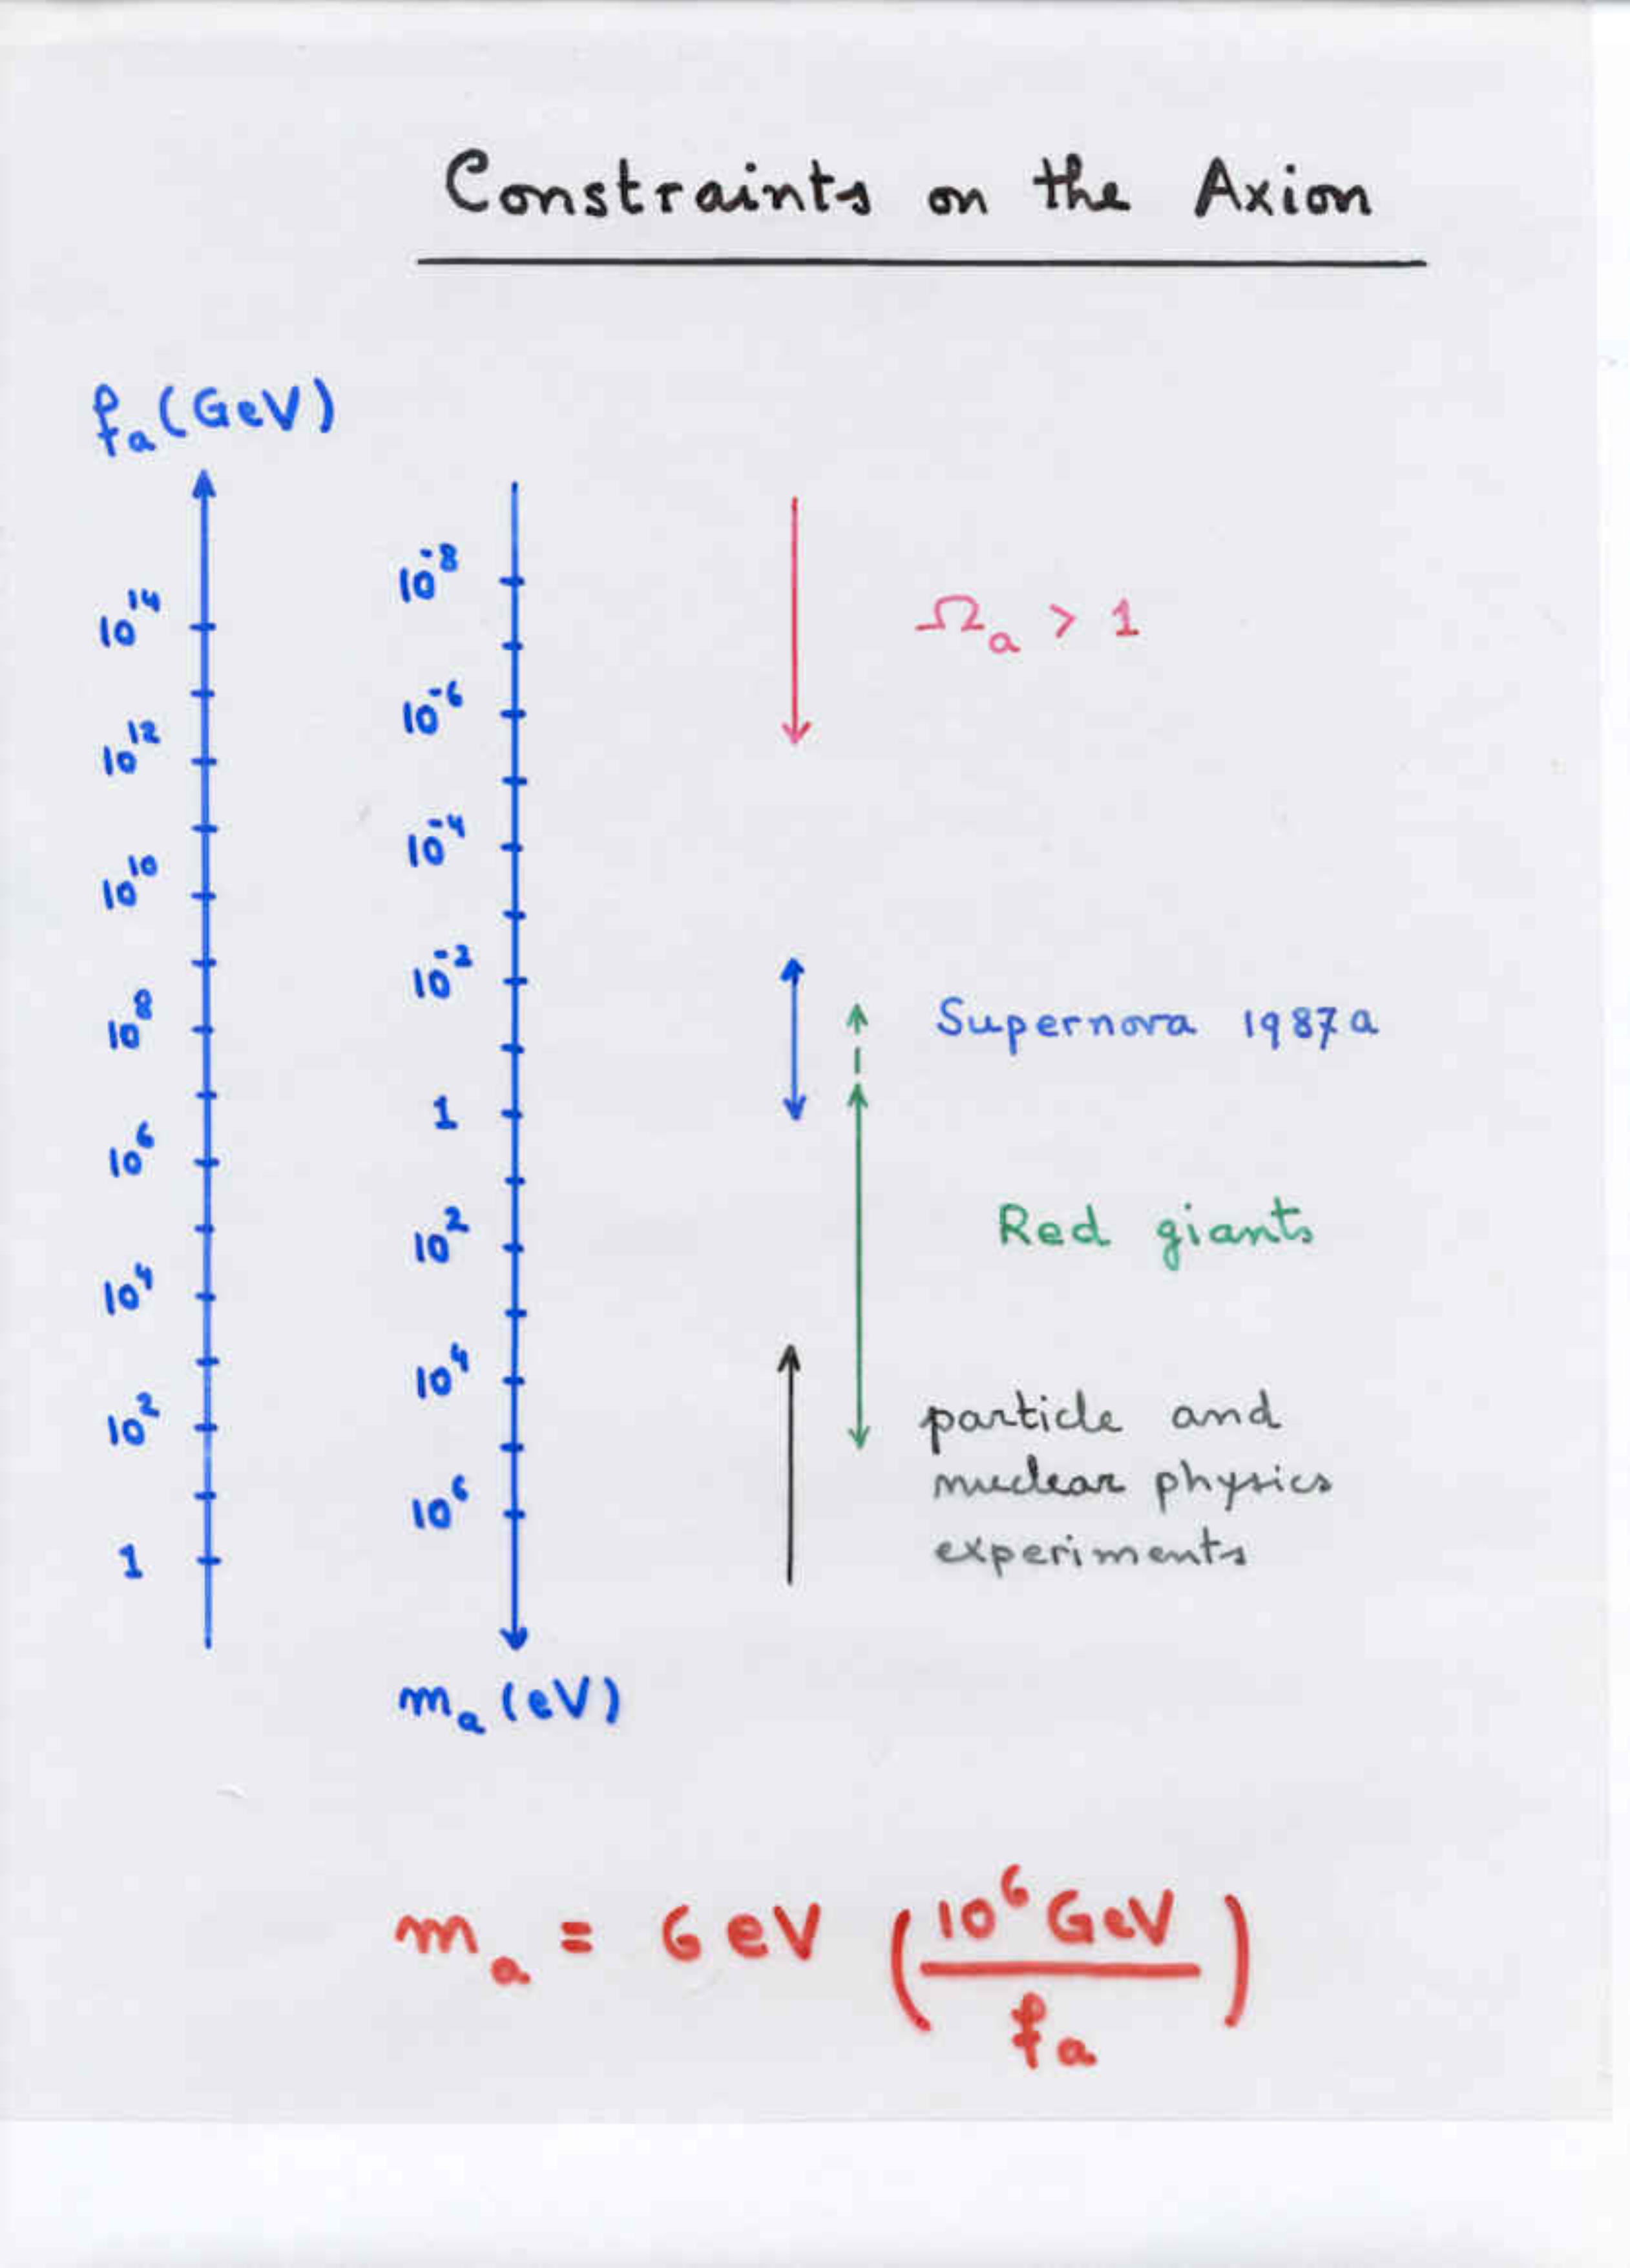 Constraints on the Axion
fₐ (GeV)
10¹⁴
10¹²
10¹⁰
10⁸
10⁶
10⁴
10²
1
10⁻⁸
10⁻⁶
10⁻⁴
10⁻²
1
10²
10⁴
10⁶
mₐ (eV)
Ωₐ > 1
Supernova 1987a
Red giants
particle and
nuclear physics
experiments
mₐ = 6 eV (10⁶ GeV / fₐ)